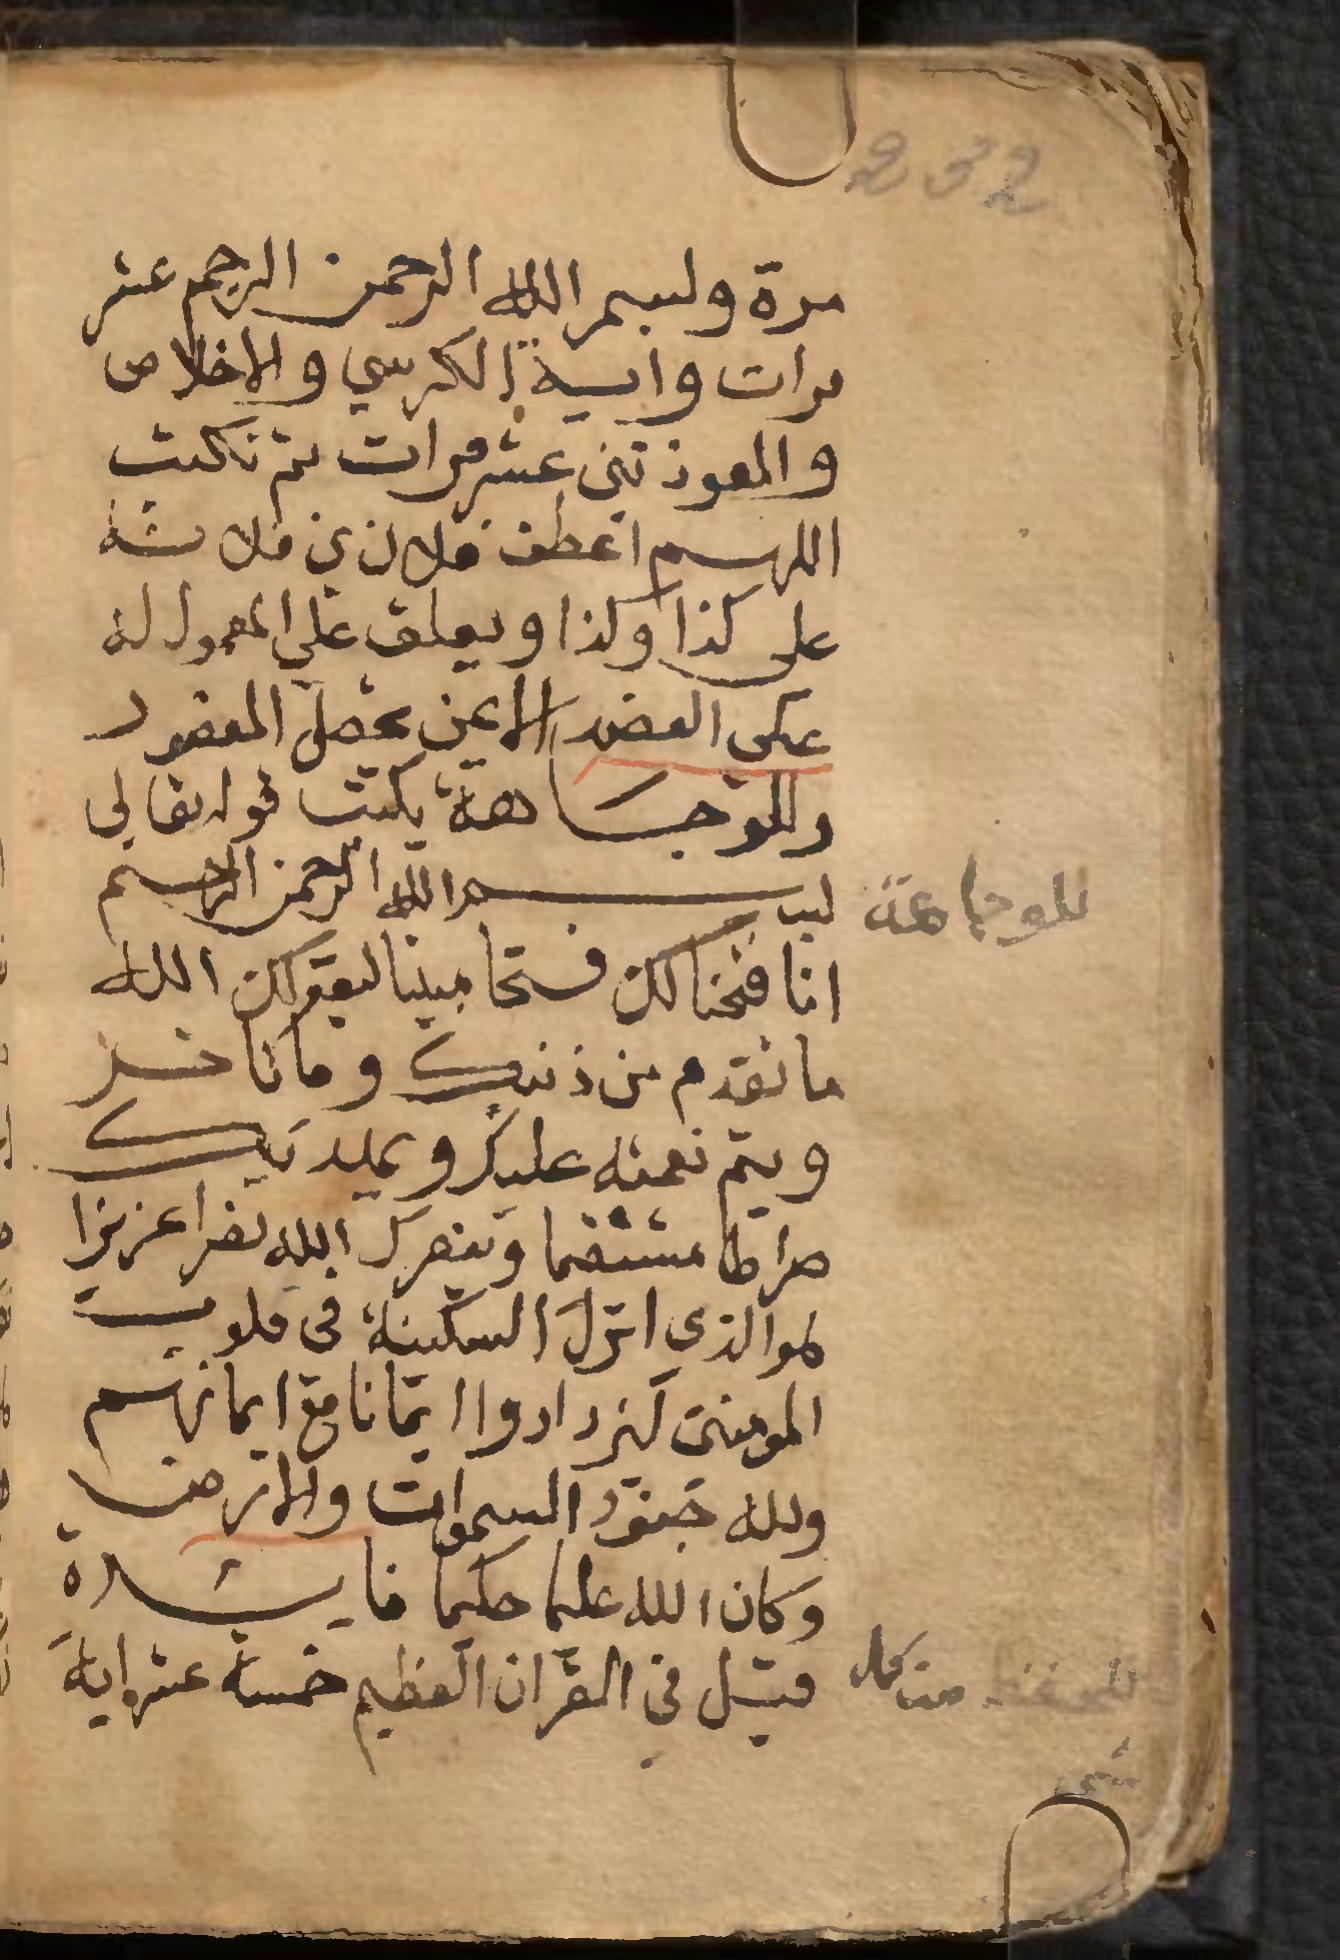 232
مرة وبسم الله الرحمن الرحيم عشر
مرات واية الكرسي والاخلاص
والمعوذتين عشر مرات ثم تكتب
اللهم اعطف فلان بن فلانة
على كذا وكذا ويعلق على المعمول له
على العضد الايمن يحصل المقصود
وللوجاهة يكتب قوله تعالى
بسم الله الرحمن الرحيم
للوجاهة
انا فتحنا لك فتحا مبينا ليغفر لك الله
ما تقدم من ذنبك وما تاخر
ويتم نعمته عليك ويهديك
صراطا مستقيما وينصرك الله نصرا عزيزا
هو الذي انزل السكينة في قلوب
المومنين ليزدادوا ايمانا مع ايمانهم
ولله جنود السموات والارض
وكان الله عليما حكيما فايدة
قيل في القران العظيم خمسة عشر اية
للحفظ من كل
شي